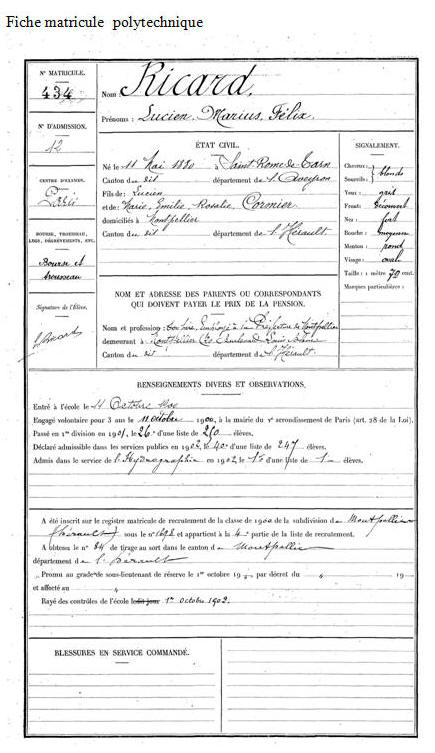 Fiche matricule polytechnique
N° MATRICULE.
434
N° D'ADMISSION.
12
CENTRE D'EXAMEN.
Paris
BOURSE, TROUSSEAU,
LEGS, DÉGRÈVEMENTS, ETC.
Bourse et
trousseau
Signature de l'Élève.
Ricard
Nom : Ricard,
Prénoms : Lucien, Marius, Félix.
ÉTAT CIVIL.
Né le 11 Mai 1880 à Saint Rome de Tarn
Canton du dit département de l'Aveyron
Fils de : Lucien
et de : Marie, Emilie, Rosalie, Cormier
domiciliés à Montpellier
Canton du dit département de l'Hérault
NOM ET ADRESSE DES PARENTS OU CORRESPONDANTS
QUI DOIVENT PAYER LE PRIX DE LA PENSION.
Nom et profession : à la Préfecture de Montpellier
demeurant à Montpellier Boulevard Louis Blanc
Canton du dit département de l'Hérault
SIGNALEMENT.
Cheveux :
Sourcils : blonds
Yeux : gris
Front : découvert
Nez : fort
Bouche : moyenne
Menton : rond
Visage : oval
Taille : 1 mètre 70 cent.
Marques particulières :
RENSEIGNEMENTS DIVERS ET OBSERVATIONS.
Entré à l'école le 11 Octobre 1900
Engagé volontaire pour 3 ans le 11 octobre 1900, à la mairie du Ve arrondissement de Paris (art. 28 de la Loi).
Passé en 1re division en 1901, le 26e d'une liste de 210 élèves.
Déclaré admissible dans les services publics en 1902, le 40e d'une liste de 247 élèves.
Admis dans le service de l'Hydrographie en 1902 le 1er d'une liste de 1 élèves.
A été inscrit sur le registre matricule de recrutement de la classe de 1900 de la subdivision de Montpellier
(Hérault) sous le n° et appartient à la 4e partie de la liste de recrutement.
A obtenu le n° 84 de tirage au sort dans le canton de Montpellier
département de l'Hérault
Promu au grade de sous-lieutenant de réserve le 1er octobre 19 par décret du 19
et affecté au
Rayé des contrôles de l'école ledit jour 1er octobre 1902.
BLESSURES EN SERVICE COMMANDÉ.